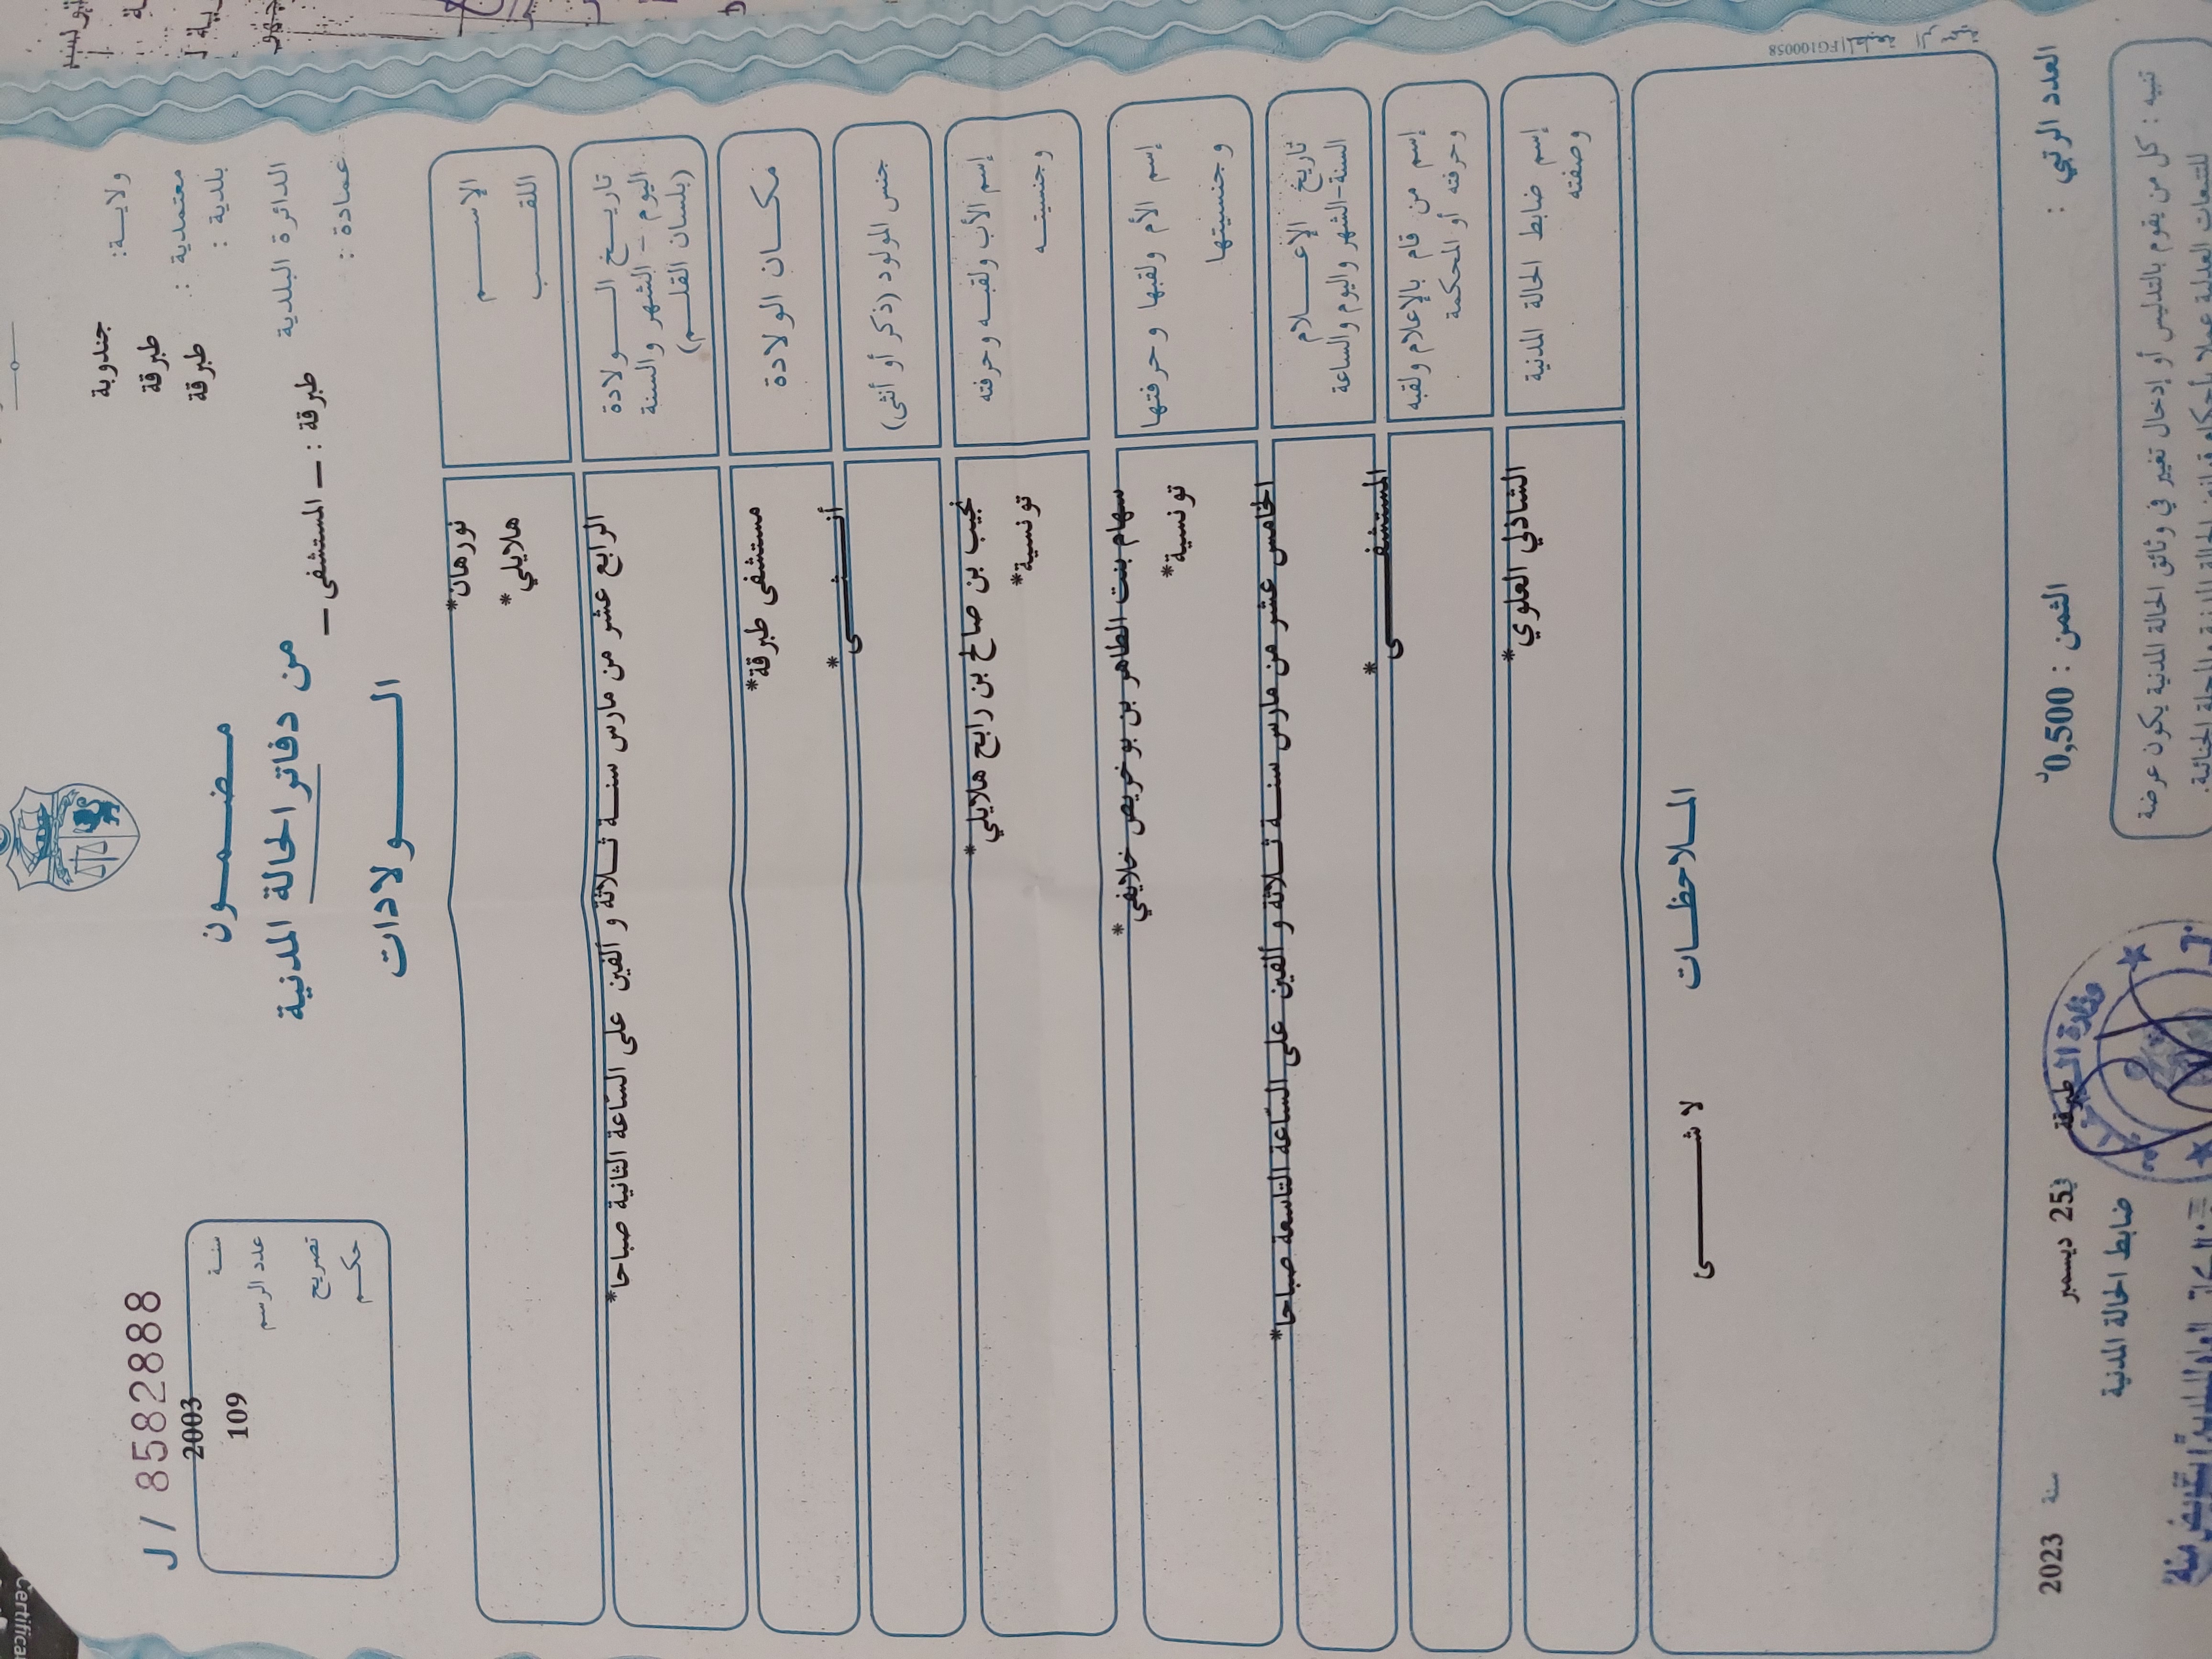 ولايــة: جندوبة
معتمدية : طبرقة
بلدية : طبرقة
الدائرة البلدية
عمادة : طبرقة : — المستشفى —
مـضـمـــون
من دفاتر الحالة المدنية
الـــــولادات
J / 8582888
سنـة 2003
عدد الرسم 109
تصريح
حكـم
الإســـــم نورهان*
اللقـــب هلايلي*
تاريــخ الـــولادة
اليوم – الشهر والسنة
(بلسان القلـم)
الرابع عشر من مارس سنـــة ثــلاثة و ألفين على السّاعة الثانية صباحا*
مكــان الولادة مستشفى طبرقة*
جنس المولود (ذكر أو أنثى) أنـــثـــى *
إسم الأب ولقبــه وحرفته نجيب بن صالح بن رابح هلايلي *
وجنسيتــه تونسية*
إسم الأم ولقبها وحرفتها سهام بنت الطاهر بن بوخريص خلايفي *
وجنسيتها تونسية*
تاريخ الإعــــلام
السنة-الشهر واليوم والساعة
الخامس عشر من مارس سنـــة ثــلاثة و ألفين على السّاعة التاسعة صباحا*
إسم من قام بالإعلام ولقبه
وحرفته أو المحكمة
المستشفـــــى *
إسم ضابط الحالة المدنية
وصفته
الشاذلي العلوي*
المــلاحظــات
لا شـــــى
FG100058
العدد الرتبي :
الثمن : 0,500
طبرقة في 25 ديسمبر سنة 2023
ضابط الحالة المدنية
تنبيه : كل من يقوم بالتدليس أو إدخال تغيير في وثائق الحالة المدنية يكون عرضة
للتتبعات العدلية عملا بأحكام
Certificat